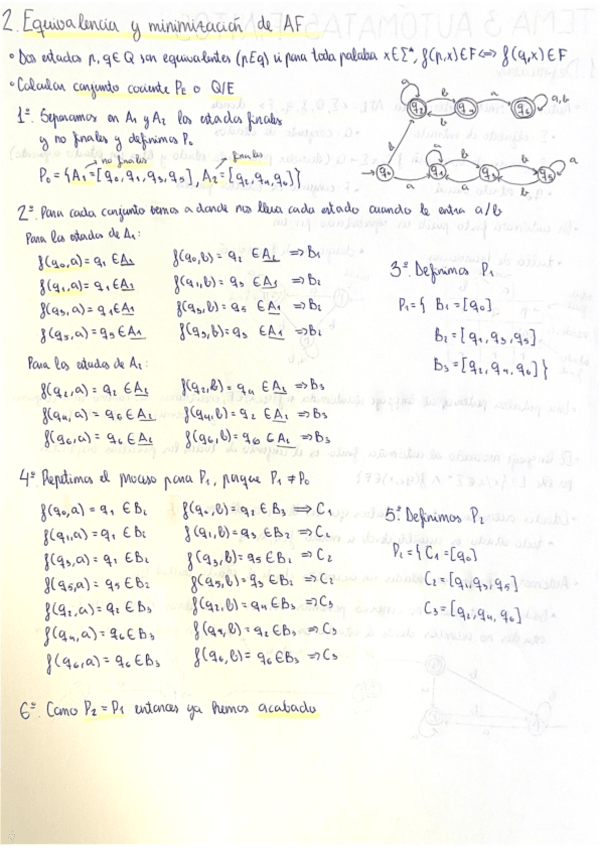 2. Equivalencia y minimización de AF
• Dos estados p, q ∈ Q son equivalentes (pEq) si para toda palabra x ∈ Σ*, f(p,x) ∈ F ⟺ f(q,x) ∈ F
• Calcular conjunto cociente P₂ o Q/E
1º. Separamos en A₁ y A₂ los estados finales
y no finales y definimos P₀
no finales finales
P₀ = {A₁ = [q₀, q₁, q₃, q₅], A₂ = [q₂, q₄, q₆]}
2º. Para cada conjunto vemos a donde nos lleva cada estado cuando le entra a/b
Para los estados de A₁:
f(q₀,a) = q₁ ∈ A₁ f(q₀,b) = q₂ ∈ A₂ ⇒ B₁
f(q₁,a) = q₁ ∈ A₁ f(q₁,b) = q₃ ∈ A₁ ⇒ B₂
f(q₃,a) = q₁ ∈ A₁ f(q₃,b) = q₅ ∈ A₁ ⇒ B₂
f(q₅,a) = q₅ ∈ A₁ f(q₅,b) = q₅ ∈ A₁ ⇒ B₂
Para los estados de A₂:
f(q₂,a) = q₂ ∈ A₂ f(q₂,b) = q₄ ∈ A₂ ⇒ B₃
f(q₄,a) = q₆ ∈ A₂ f(q₄,b) = q₂ ∈ A₂ ⇒ B₃
f(q₆,a) = q₆ ∈ A₂ f(q₆,b) = q₆ ∈ A₂ ⇒ B₃
3º. Definimos P₁
P₁ = { B₁ = [q₀]
B₂ = [q₁, q₃, q₅]
B₃ = [q₂, q₄, q₆] }
4º Repetimos el proceso para P₁, porque P₁ ≠ P₀
f(q₀,a) = q₁ ∈ B₂ f(q₀,b) = q₂ ∈ B₃ ⟹ C₁
f(q₁,a) = q₁ ∈ B₂ f(q₁,b) = q₃ ∈ B₂ ⇒ C₂
f(q₃,a) = q₁ ∈ B₂ f(q₃,b) = q₅ ∈ B₂ ⇒ C₂
f(q₅,a) = q₅ ∈ B₂ f(q₅,b) = q₅ ∈ B₂ ⇒ C₂
f(q₂,a) = q₂ ∈ B₃ f(q₂,b) = q₄ ∈ B₃ ⇒ C₃
f(q₄,a) = q₆ ∈ B₃ f(q₄,b) = q₂ ∈ B₃ ⇒ C₃
f(q₆,a) = q₆ ∈ B₃ f(q₆,b) = q₆ ∈ B₃ ⇒ C₃
5º. Definimos P₂
P₂ = { C₁ = [q₀]
C₂ = [q₁, q₃, q₅]
C₃ = [q₂, q₄, q₆]
6º. Como P₂ = P₁ entonces ya hemos acabado